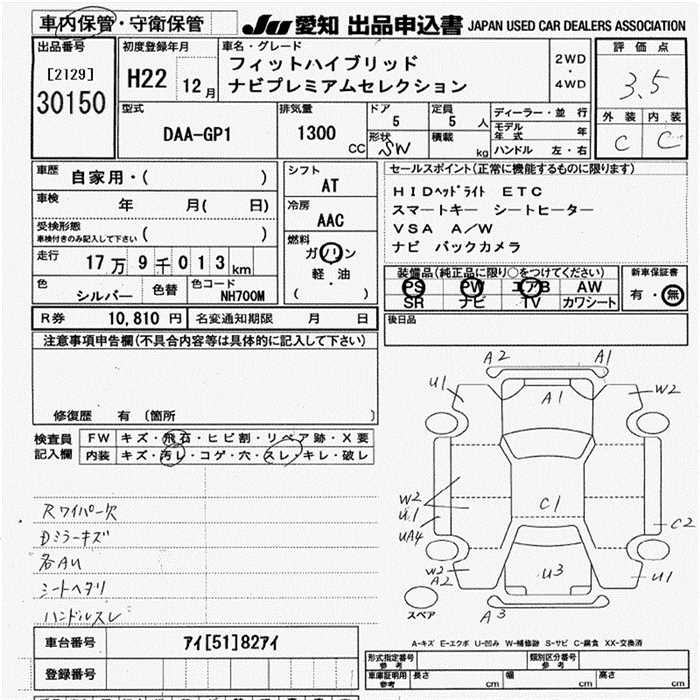 車内保管・守衛保管
JU 愛知 出品申込書 JAPAN USED CAR DEALERS ASSOCIATION
出品番号
[2129]
30150
初度登録年月
H22 12月
車名・グレード
フィットハイブリッド
ナビプレミアムセレクション
2WD
・
4WD
評価点
3.5
外装 内装
C C
型式
DAA-GP1
排気量
1300 cc
ドア
5
定員
5 人
形状
SW
積載
kg
ディーラー・並行
モデル年式 年
ハンドル 左・右
車歴 自家用・( )
車検 年 月( 日)
受検形態
車検付きのみ記入して下さい ( )
走行 17万9千013km
色 シルバー 色替 色コード NH700M
シフト
AT
冷房
AAC
燃料
ガソリン
軽・油
( )
セールスポイント(正常に機能するものに限ります)
HIDヘッドライト ETC
スマートキー シートヒーター
VSA A/W
ナビ バックカメラ
装備品(純正品に限り○をつけてください)
PS PW エアB AW
SR ナビ TV カワシート
新車保証書
有・無
R券 10,810 円 名変通知期限 月 日
後日品
注意事項申告欄(不具合内容等は具体的に記入して下さい)
修復歴 有〔箇所 〕
検査員
記入欄
FW キズ・飛石・ヒビ割・リペア跡・X要
内装 キズ・汚レ・コゲ・穴・スレ・キレ・破レ
Rワイパー欠
Dミラーキズ
各AU
シートヘタリ
ハンドルスレ
A2 A1
U1 A1 W2
W2
U1 C1 C2
UA4
W2
A2 U3 U1
スペア A3
A-キズ E-エクボ U-凹み W-補修跡 S-サビ C-腐食 XX-交換済
車台番号 アイ[51]82アイ
登録番号
形式指定番号
参考
類別区分番号
参考
車庫証明用
参考
長さ cm 幅 cm 高さ cm